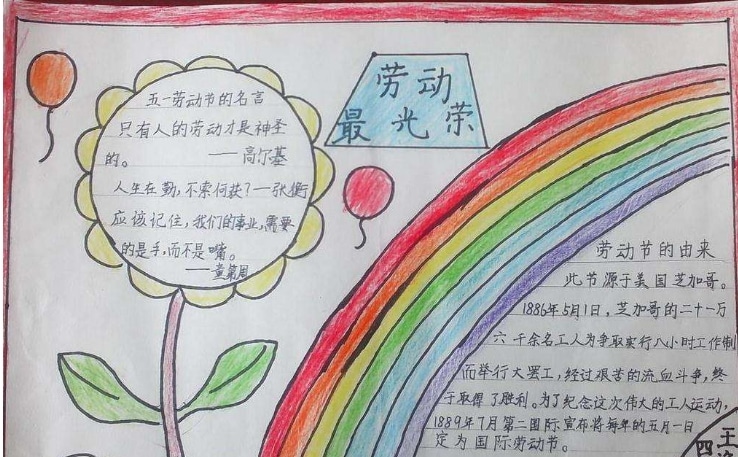 劳动
最光荣
五一劳动节的名言
只有人的劳动才是神圣
的。 ——高尔基
人生在勤,不索何获?—张衡
应该记住,我们的事业,需要
的是手,而不是嘴。
——童第周
劳动节的由来
此节源于美国芝加哥。
1886年5月1日,芝加哥的二十一万
六千余名工人为争取实行八小时工作制
而举行大罢工,经过艰苦的流血斗争,终
于取得了胜利。为了纪念这次伟大的工人运动,
1889年7月第二国际宣布将每年的五月一日
定为国际劳动节。
王
四